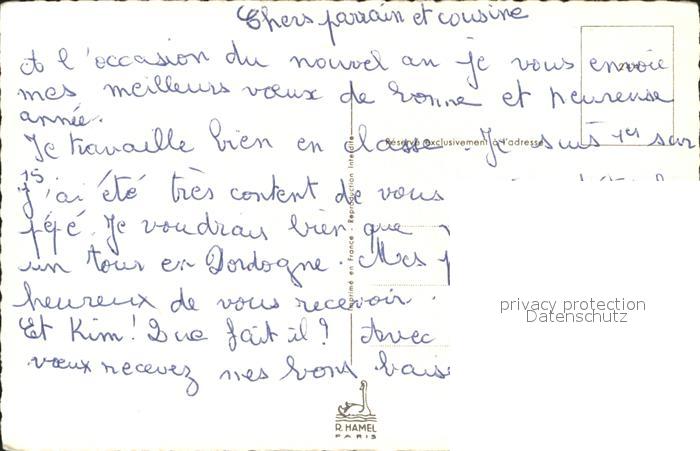 Chers parrain et cousine
A l'occasion du nouvel an je vous envoie
mes meilleurs vœux de bonne et heureuse
année.
Je travaille bien en classe. Je suis 1er sur
Réservé exclusivement à l'adresse
15
J'ai été très content de vous
pépé. Je voudrais bien que
un tour en Dordogne. Mes
heureux de vous recevoir.
Et Kim! Que fait il? Avec
vœux recevez mes bons bais
Imprimé en France - Reproduction Interdite
privacy protection
Datenschutz
R. HAMEL
PARIS